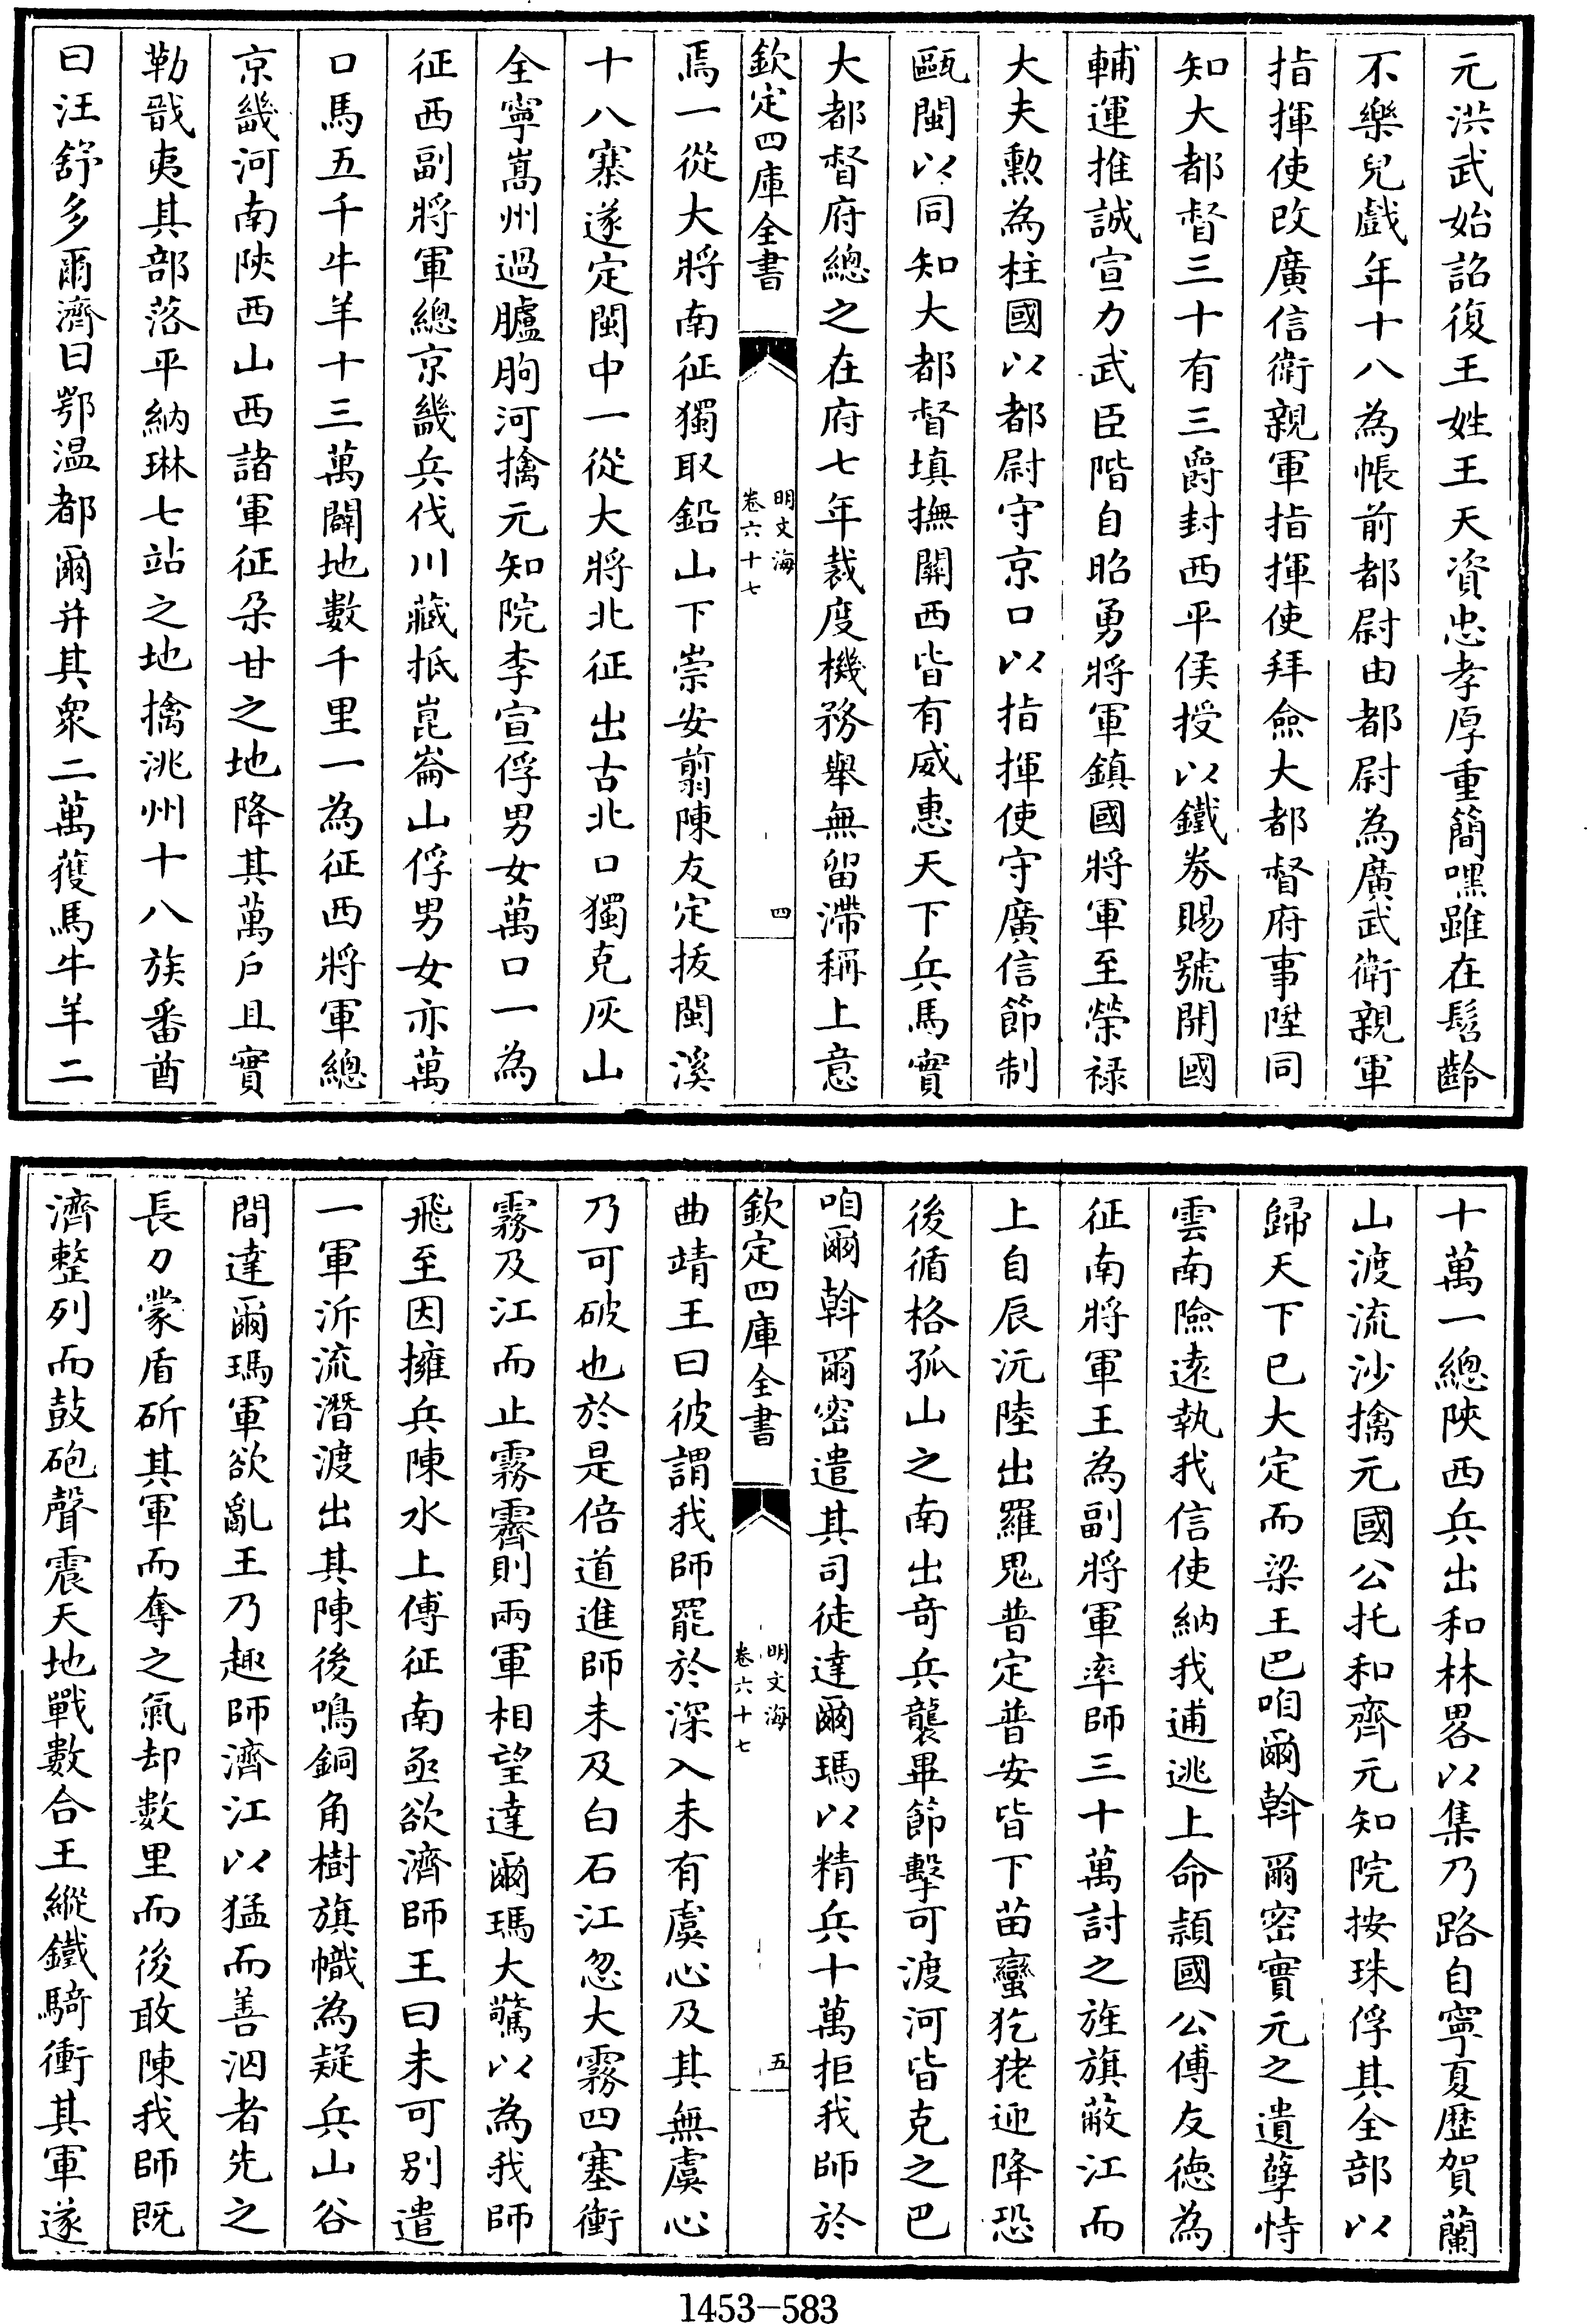 元洪武始詔復王姓王天資忠孝厚重簡嘿雖在髫齡
不樂兒戲年十八為帳前都尉由都尉為廣武衛親軍
指揮使改廣信衛親軍指揮使拜僉大都督府事陞同
知大都督三十有三爵封西平侯授以鐵券賜號開國
輔運推誠宣力武臣階自昭勇將軍鎮國將軍至榮禄
大夫勲為柱國以都尉守京口以指揮使守廣信節制
甌閩以同知大都督填撫關西皆有威惠天下兵馬實
大都督府總之在府七年裁度機務舉無留滯稱上意
欽定四庫全書
明文海
卷六十七
四
焉一從大將南征獨取鉛山下崇安翦陳友定拔閩溪
十八寨遂定閩中一從大將北征出古北口獨克灰山
全寧嵩州過臚朐河擒元知院李宣俘男女萬口一為
征西副將軍總京畿兵伐川藏抵崑崙山俘男女亦萬
口馬五千牛羊十三萬闢地數千里一為征西將軍總
京畿河南陜西山西諸軍征朵甘之地降其萬戶且實
勒戩夷其部落平納琳七站之地擒洮州十八族番酋
曰汪舒多爾濟曰鄂温都爾并其衆二萬獲馬牛羊二
十萬一總陜西兵出和林畧以集乃路自寧夏歴賀蘭
山渡流沙擒元國公托和齊元知院按珠俘其全部以
歸天下已大定而梁王巴咱爾斡爾密實元之遺孽恃
雲南險遠執我信使納我逋逃上命頴國公傅友德為
征南將軍王為副將軍率師三十萬討之旌旗蔽江而
上自辰沅陸出羅鬼普定普安皆下苗蠻犵狫迎降恐
後循格孤山之南出竒兵襲畢節擊可渡河皆克之巴
咱爾斡爾密遣其司徒達爾瑪以精兵十萬拒我師於
欽定四庫全書
明文海
卷六十七
五
曲靖王曰彼謂我師罷於深入未有虞心及其無虞心
乃可破也於是倍道進師未及白石江忽大霧四塞衝
霧及江而止霧霽則兩軍相望達爾瑪大驚以為我師
飛至因擁兵陳水上傅征南亟欲濟師王曰未可别遣
一軍泝流潛渡出其陳後鳴銅角樹旗幟為疑兵山谷
間達爾瑪軍欲亂王乃趣師濟江以猛而善泅者先之
長刀蒙盾斫其軍而奪之氣却數里而後敢陳我師既
濟整列而鼓砲聲震天地戰數合王縱鐵騎衝其軍遂
1453-583